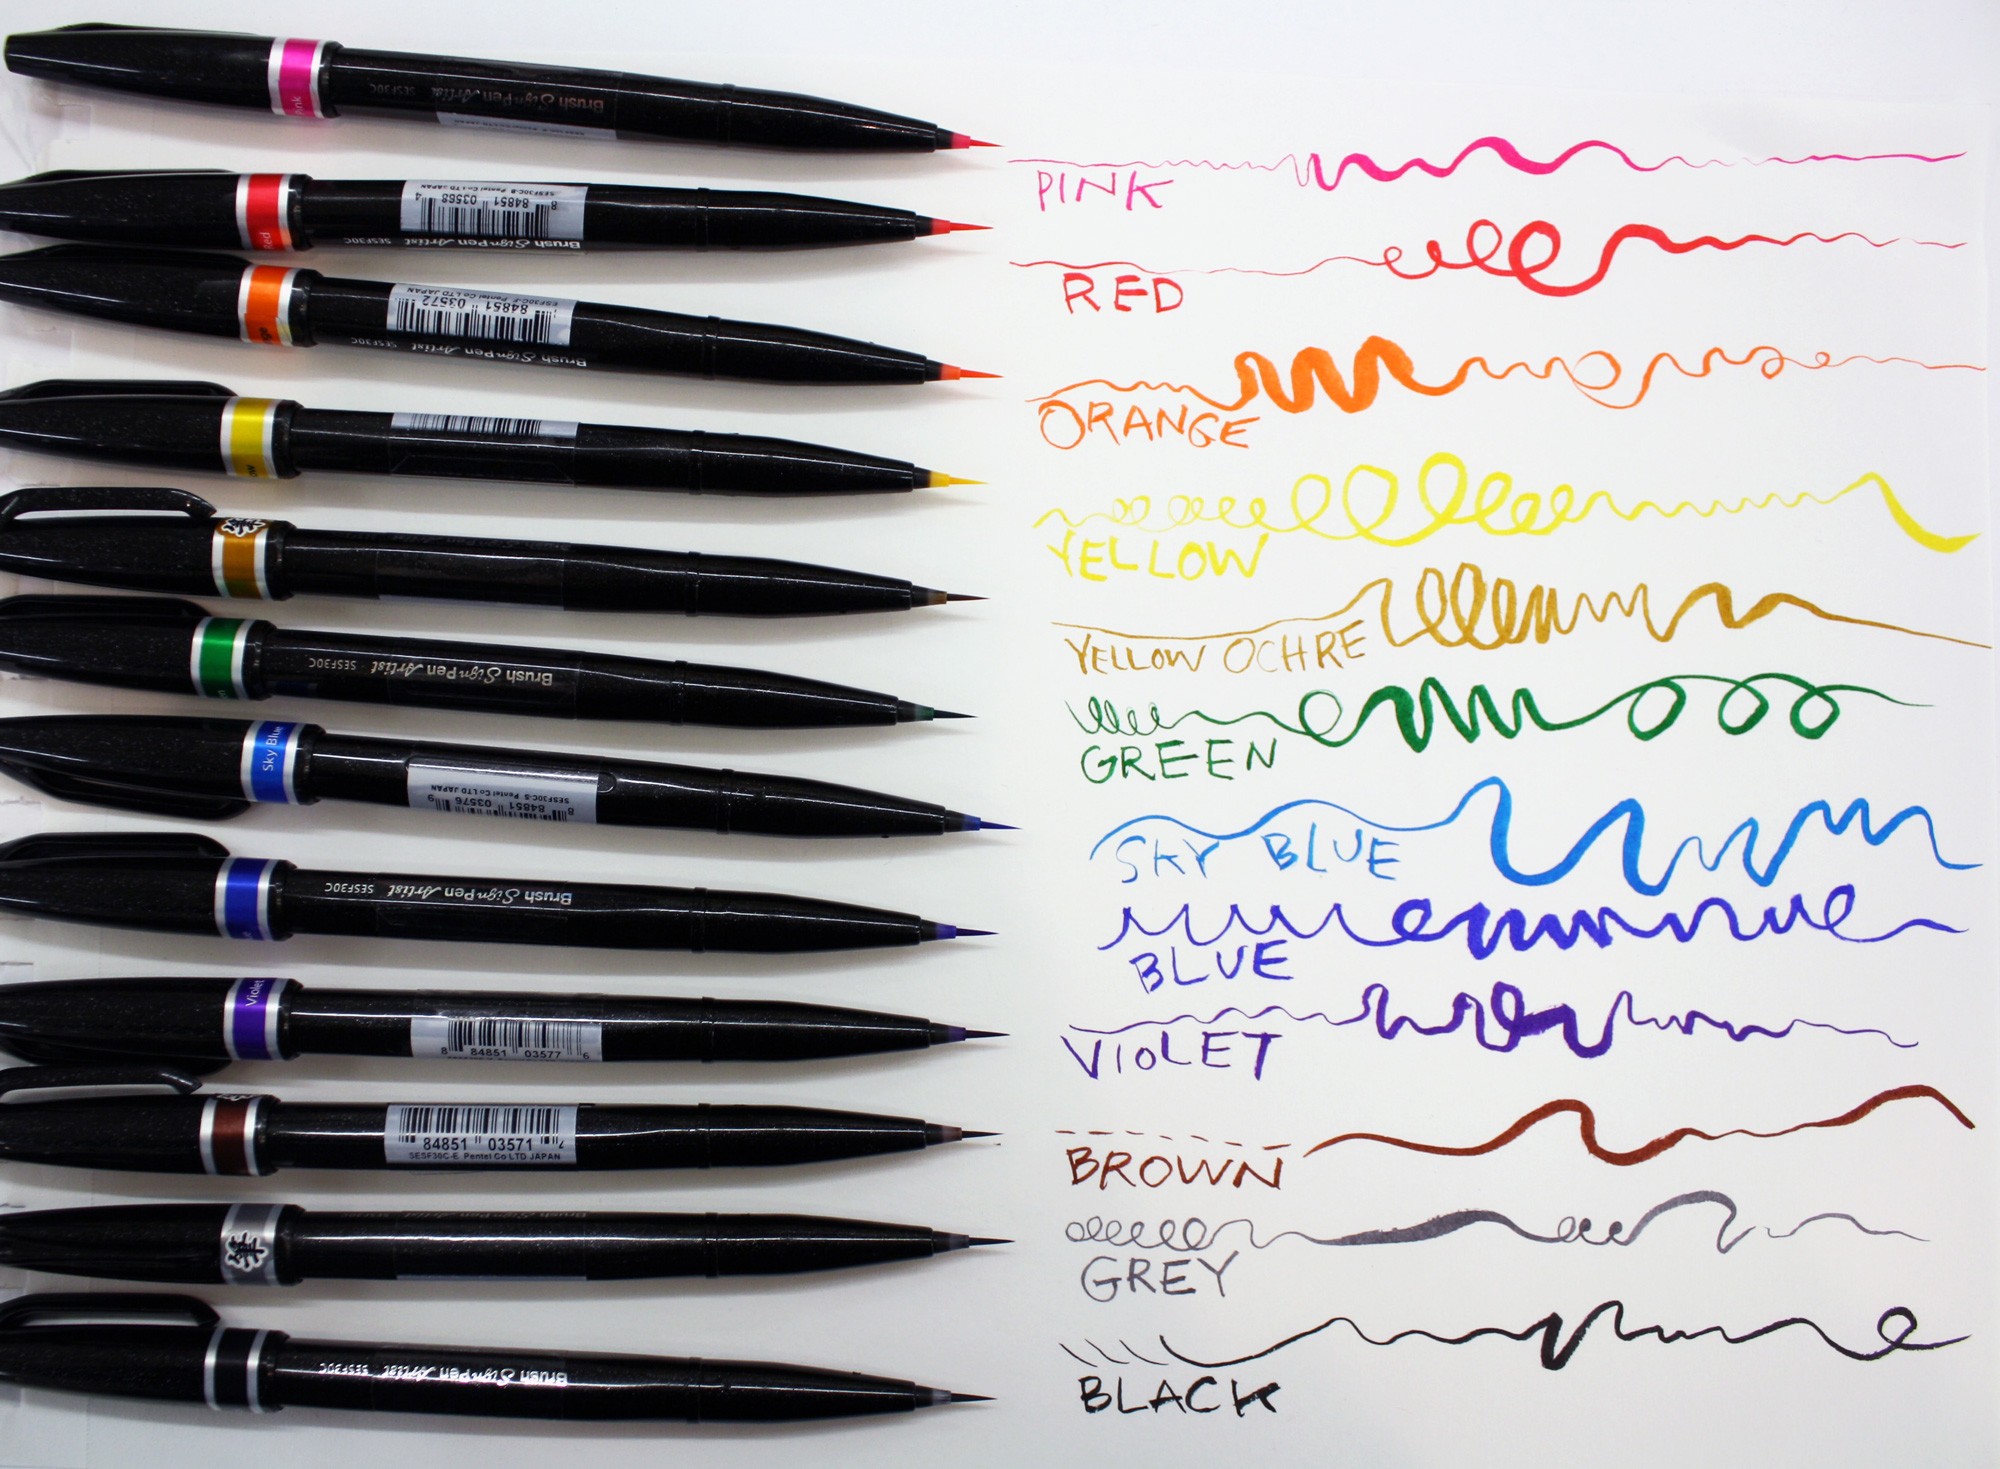 Brush Sign Pen Artist SESF30C
PINK
Red
8 84851 03568 4
SESF30C-B Pentel Co LTD JAPAN
Brush Sign Pen Artist SESF30C
RED
84851 03572
SESF30C-F Pentel Co LTD JAPAN
Brush Sign Pen Artist SESF30C
ORANGE
YELLOW
YELLOW OCHRE
Brush Sign Pen Artist SESF30C
GREEN
Sky Blue
8 84851 03576 9
SESF30C-S Pentel Co LTD JAPAN
SKY BLUE
Brush Sign Pen Artist SESF30C
BLUE
Violet
8 84851 03577 6
VIOLET
84851 03571 7
SESF30C-E Pentel Co LTD JAPAN
BROWN
GREY
Brush Sign Pen Artist SESF30C
BLACK